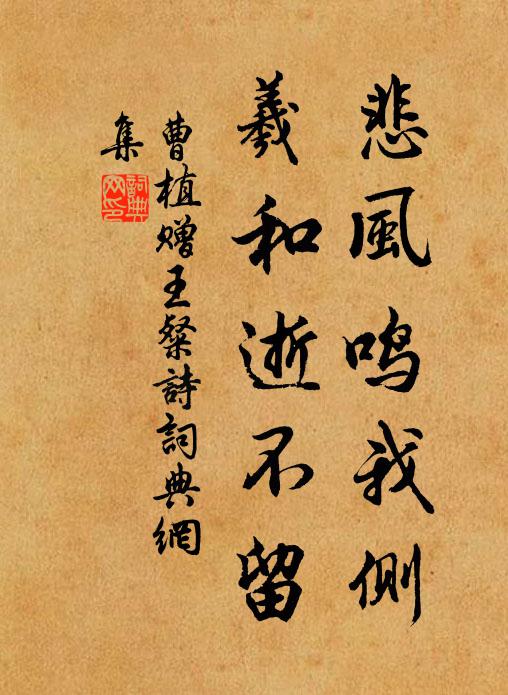 悲風鳴我側
羲和逝不留
曹植贈王粲詩詞典網
集
詞典
网印